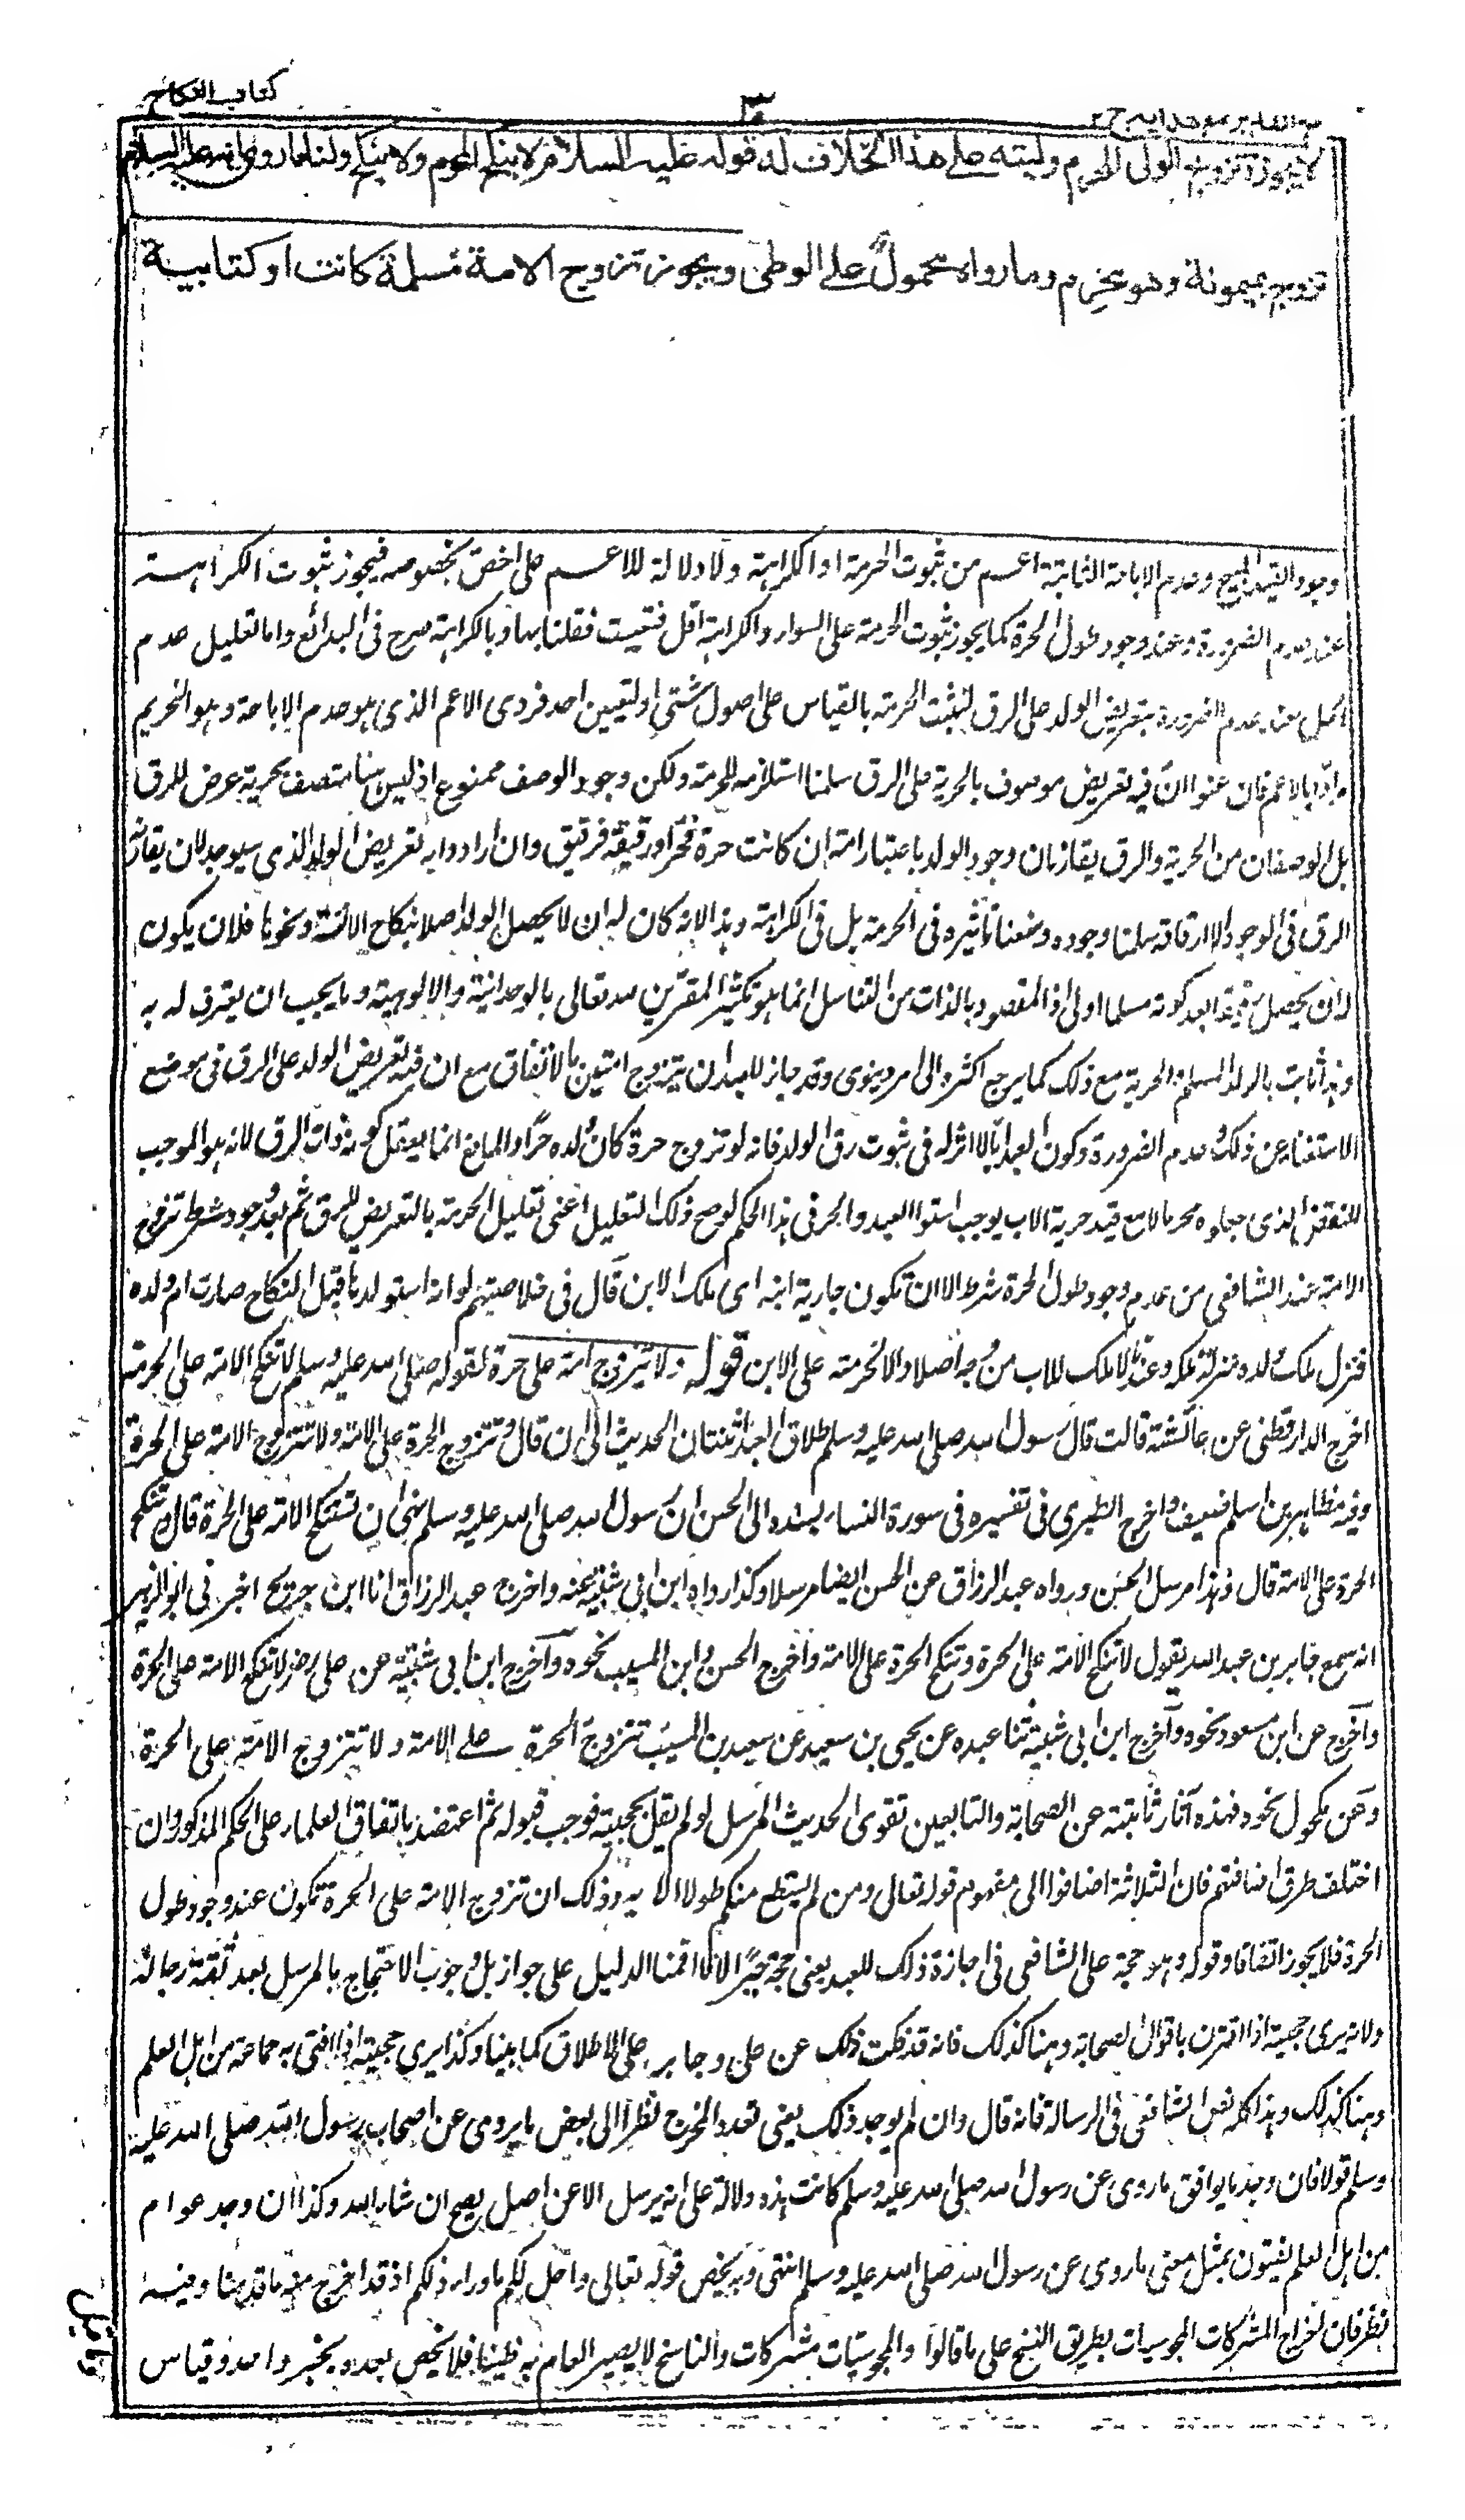 كتاب النكاح
٣
فتح القدير مع هدايه ج ٢
لا يجوز تزويج الولي المحرم وليته على هذا الخلاف له قوله عليه السلام لا ينكح المحرم ولا ينكح ولنا ما روي انه عليه السلام
تزوج بميمونة وهو محرم وما رواه محمول على الوطئ ويجوز تزوج الامة مسلمة كانت او كتابية
وجود القيد المبيح وعدم الاباحة الثابتة اعم من ثبوت الحرمة او الكراهة ولا دلالة للاعم على اخص بخصوصه فيجوز ثبوت الكراهة
عند عدم الضرورة وعند وجود طول الحرة كما يجوز ثبوت الحرمة على السواء والكراهة اقل فتعينت فقلنا بها وبالكراهة صرح في البدائع واما تعليل عدم
الحل عند عدم الضرورة بتعريض الولد على الرق لتثبت الحرمة بالقياس على اصول شتى او لتعيين احد فردي الاعم الذي هو عدم الاباحة وهو التحريم
مرادا بالاعم فان عنوا ان فيه تعريض موصوف بالحرية على الرق سلمنا استلزامه للحرمة ولكن وجود الوصف ممنوع اذ ليس هنا متصف بحرية عرض للرق
بل الوصفان من الحرية والرق يقارنان وجود الولد باعتبار امه ان كانت حرة فحر او رقيقة فرقيق وان ارادوا به تعريض الولد الذي سيوجد لان يقارنه
الرق في الوجود لا ارقاقه سلمنا وجوده ومنعنا تاثيره في الحرمة بل في الكراهة وهذا لانه كان له ان لا يحصل الولد اصلا بنكاح الآئسة ونحوها فلان يكون
له ان يحصل رقيقا بعد كونه مسلما اولى اذ المقصود بالذات من التناسل انما هو تكثير المقرين لله تعالى بالوحدانية والالوهية وما يجب ان يعترف له به
وهذا ثابت بالولد المسلم والحرية مع ذلك كمال يرجع اكثره الى امر دنيوي وقد جاز للعبد ان يتزوج امتين بالاتفاق مع ان فيه تعريض الولد على الرق في موضع
الاستغناء عن ذلك وعدم الضرورة وكون العبد ابا لا اثر له في ثبوت رق الولد فانه لو تزوج حرة كان ولده حرا والمانع انما يعقل كونه ذات الرق لانه هو الموجب
للنقص الذي جعلوه محرما لا مع قيد حرية الاب يوجب استواء العبد والحر في هذا الحكم لو صح ذلك التعليل اعني تعليل الحرمة بالتعريض للرق ثم بعد وجود شرط تزوج
الامة عند الشافعي من عدم وجود طول الحرة شرط الا ان تكون جارية ابنه اي ملك الابن قال في خلاصتهم لو انه استولدها قبل النكاح صارت ام ولده
فنزل ملك ولده منزلة ملكه وعندنا لا ملك للاب من وجه اصلا والا لحرمت على الابن قوله ولا يتزوج امة على حرة لقوله صلى الله عليه وسلم لا تنكح الامة على الحرة
اخرج الدارقطني عن عائشة قالت قال رسول الله صلى الله عليه وسلم طلاق العبد ثنتان الحديث الى ان قال وتتزوج الحرة على الامة ولا تتزوج الامة على الحرة
وفيه مظاهر بن اسلم ضعيف واخرج الطبري في تفسيره في سورة النساء بسنده الى الحسن ان رسول الله صلى الله عليه وسلم نهى ان تستنكح الامة على الحرة قال وتنكح
الحرة على الامة قال وهذا مرسل الحسن ورواه عبد الرزاق عن الحسن ايضا مرسلا وكذا رواه ابن ابي شيبة عنه واخرج عبد الرزاق انا ابن جريج اخبرني ابو الزبير
انه سمع جابر بن عبد الله يقول لا تنكح الامة على الحرة وتنكح الحرة على الامة واخرج الحسن وابن المسيب نحوه وأخرج ابن ابي شيبة عن علي رضـ لا تنكح الامة على الحرة
وأخرج عن ابن مسعود نحوه وأخرج ابن ابي شيبة ثنا عبده عن يحيى بن سعيد عن سعيد بن المسيب تتزوج الحرة على الامة ولا تتزوج الامة على الحرة
وعن مكحول نحوه فهذه آثار ثابتة عن الصحابة والتابعين تقوي الحديث المرسل لو لم يقل بحجيته فوجب قبوله ثم اعتضد باتفاق العلماء على الحكم المذكور وان
اختلف طرق اضافتهم فان الثلاثة اضافوا الى مفهوم قوله تعالى ومن لم يستطع منكم طولا الآية وذلك ان تزوج الامة على الحرة تكون عند وجود طول
الحرة فلا يجوز اتفاقا وقوله وهو حجة على الشافعي في اجازة ذلك للعبد يعني حجة جبرا لانا اقمنا الدليل على جواز بل وجوب الاحتجاج بالمرسل بعد ثقة رجاله
ولانه يرى حجيته اذا اقترن باقوال الصحابة وهنا كذلك فانه قد ثبت ذلك عن علي وجابر على الاطلاق كما بينا وكذا يرى حجيته اذا افتى به جماعة من اهل العلم
وهنا كذلك وهذا كله نص الشافعي في الرسالة فانه قال وان لم يوجد ذلك يعني تعدد المخرج نظر الى بعض ما يروى عن اصحاب رسول الله صلى الله عليه
وسلم قولا فان وجد ما يوافق ما روي عن رسول الله صلى الله عليه وسلم كانت هذه دلالة على انه لم يرسل الا عن اصل يصح ان شاء الله وكذا ان وجد عوام
من اهل العلم يفتون بمثل معنى ما روي عن رسول الله صلى الله عليه وسلم انتهى وبه يخص قوله تعالى واحل لكم ما وراء ذلكم اذ قد اخرج منه ما قدمنا وفيه
نظر فان اخراج المشركات المجوسيات بطريق النسخ على ما قالوا والمجوسيات مشركات والناسخ لا يصير العام به ظنيا فلا يخص بعده بخبر واحد وقياس